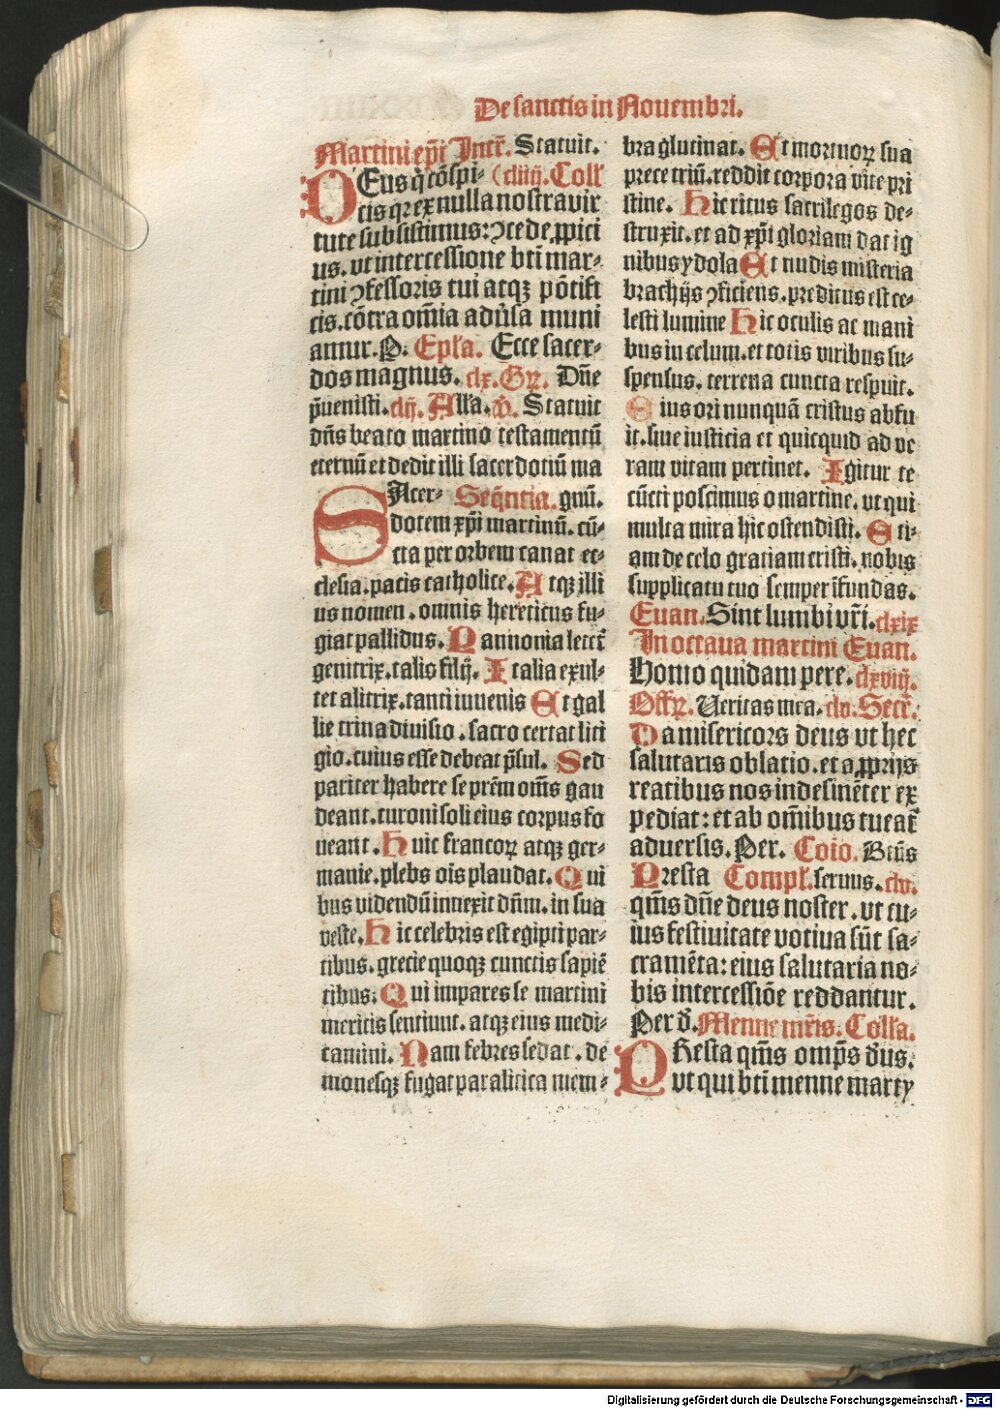 De sanctis in Nouembri.
Martini ep̄i Intr̄. Statuit.
DEus q̄ cōspi- (cliiij. Coll'
cis qꝛ ex nulla nostra vir
tute subsistimus: ꝯcede ꝓpici
us. vt intercessione bt̄i mar-
tini ꝯfessoris tui atqꝫ pōtifi
cis. cōtra om̄ia aduṡa muni
amur. P. Ep̄la. Ecce sacer-
dos magnus. clx. Gꝛ. Dn̄e
p̄uenisti. clij. Alla. v̄. Statuit
dn̄s beato martino testamentū
eternū et dedit illi sacerdotiū ma
SAcer- Seq̄ntia. gnū.
dotem xp̄i martinū. cū-
cta per orbem canat ec-
clesia. pacis catholice. Atqꝫ illi
us nomen. omnis hereticus fu-
giat pallidus. Pannonia letet̄
genitrix. talis filij. Italia exul-
tet alitrix. tanti iuuenis Et gal
lie trina diuisio. sacro certat liti
gio. cuius esse debeat p̄sul. Sed
pariter habere se prēm om̄s gau
deant. turoni soli eius corpus fo
ueant. Huic francoꝝ atqꝫ ger-
manie. plebs ois plaudat. Qui
bus videndū inuexit dn̄m. in sua
veste. Hic celebris est egipti par-
tibus. grecie quoqꝫ cunctis sapiē
tibus: Qui impares se martini
meritis sentiunt. atqꝫ eius medi-
camini. Nam febres sedat. de
monesqꝫ fugat paralitica mem-
bra glutinat. Et mortuoꝝ sua
prece triū. reddit corpora vite pri
stine. Hic ritus sacrilegos de-
struxit. et ad xp̄i gloriam dat ig
nibus ydola Et nudis misteria
brachijs ꝯficiens. preditus est ce-
lesti lumine Hic oculis ac mani
bus in celum. et totis viribus su-
spensus. terrena cuncta respuit.
Eius ori nunquā cristus abfu
it. siue iusticia et quicquid ad ve
ram vitam pertinet. Igitur te
cūcti poscimus o martine. vt qui
multa mira hic ostendisti. Eti-
am de celo gratiam cristi. nobis
supplicatu tuo semper īfundas.
Euan. Sint lumbi vr̄i. clxix
In octaua martini Euan.
Homo quidam pere. clxviij.
Offꝝ. Veritas mea. clv. Secr̄.
Da misericors deus vt hec
salutaris oblatio. et a ꝓprijs
reatibus nos indesinēter ex
pediat: et ab om̄ibus tueat̄
aduersis. Per. Coīo. Btūs
Presta Compl'. seruus. clv.
qm̄s dn̄e deus noster. vt cu-
ius festiuitate votiua sūt sa-
cramēta: eius salutaria no-
bis intercessiōe reddantur.
Per d̄. Menne mr̄is. Coll'a.
PResta qm̄s omp̄s d̄us.
vt qui bt̄i menne marty
Digitalisierung gefördert durch die Deutsche Forschungsgemeinschaft - DFG